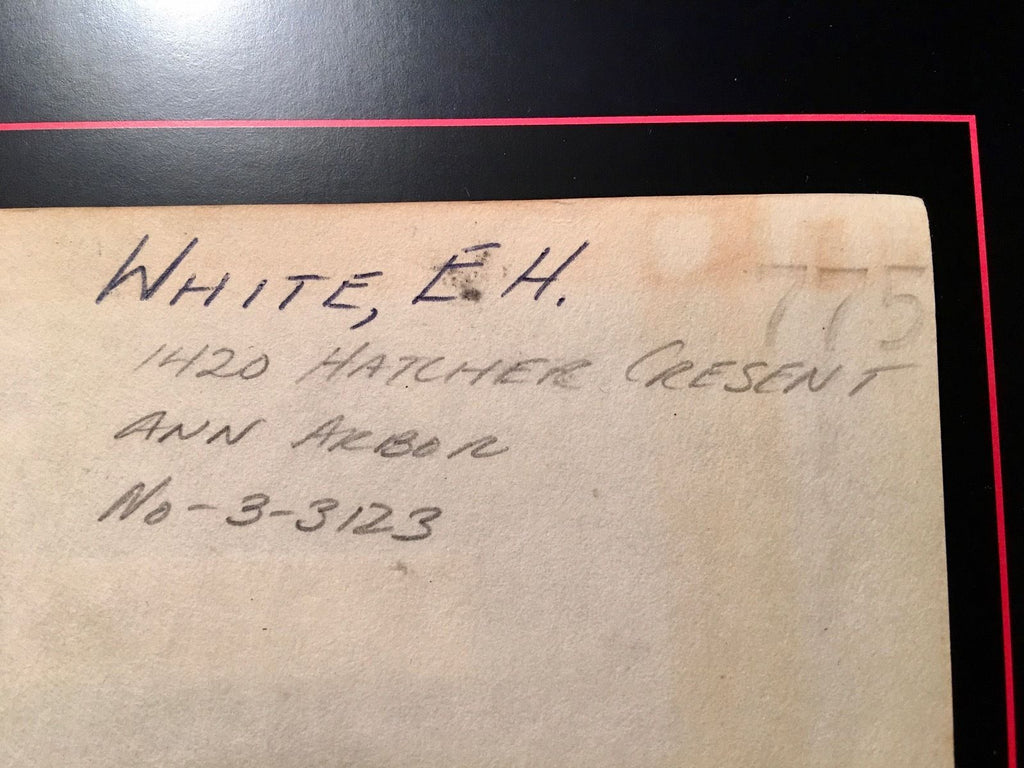 775
WHITE, E H.
1420 HATCHER CRESENT
ANN ARBOR
No-3-3123